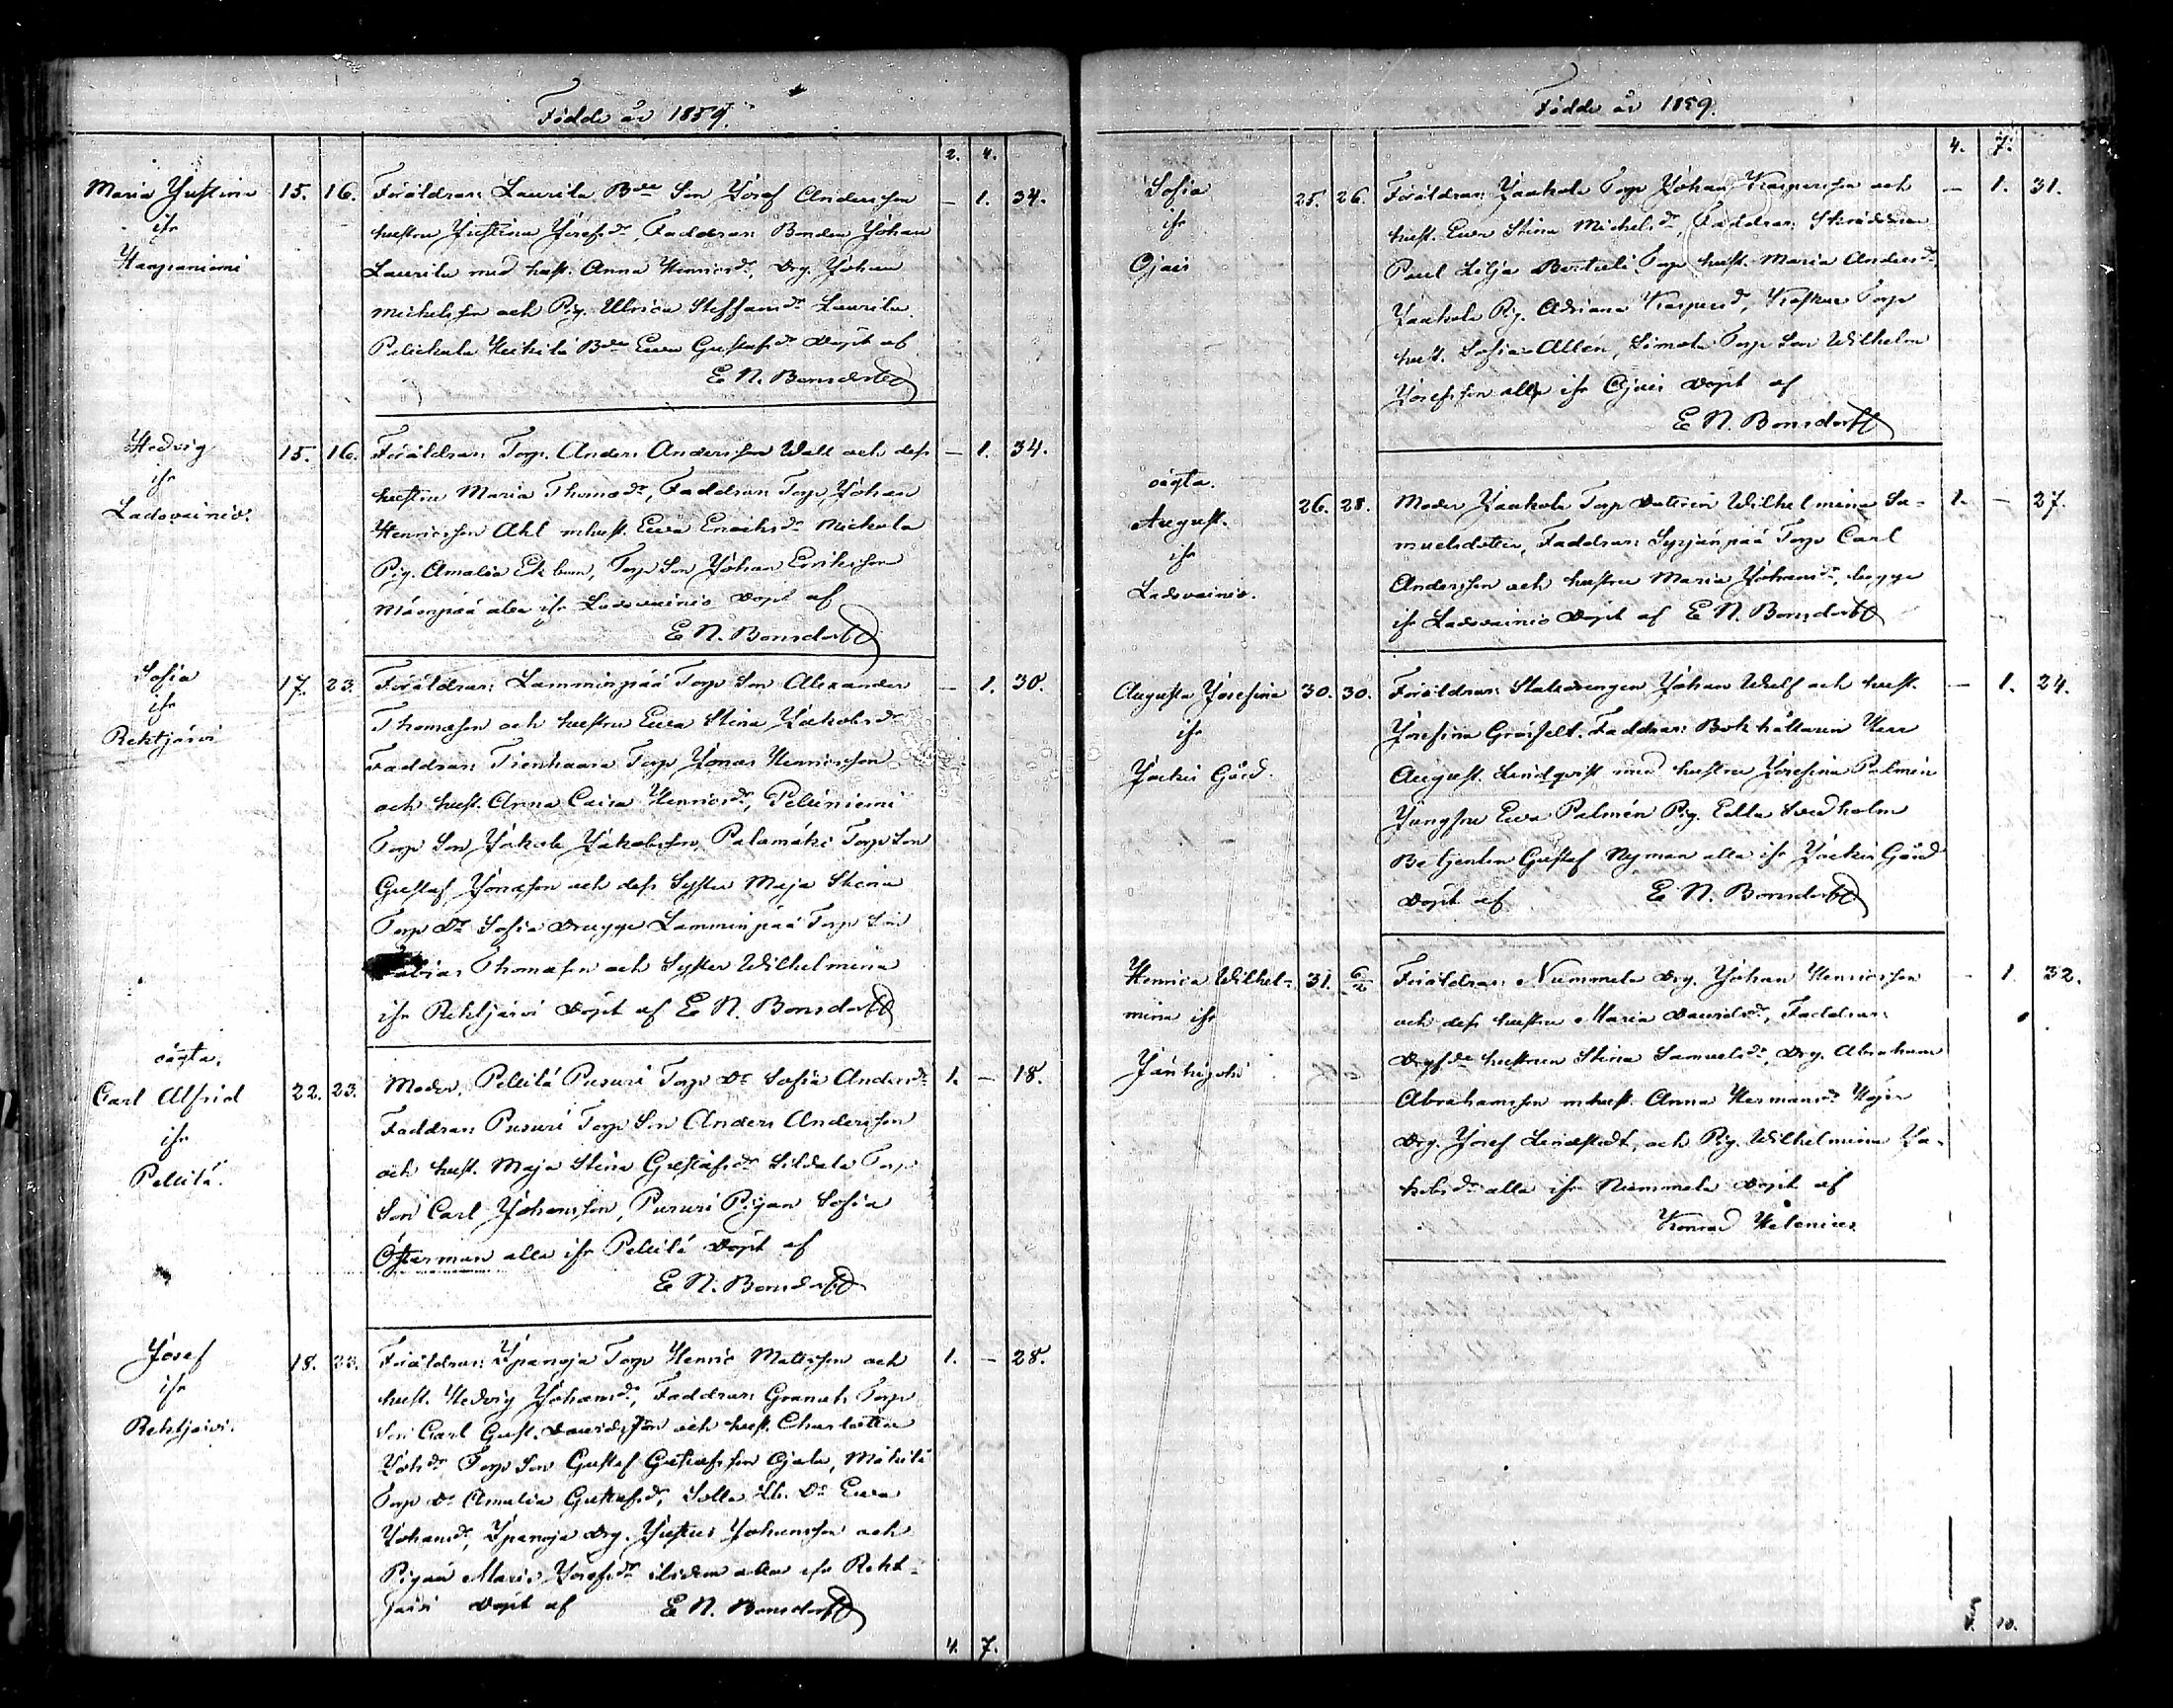 Födde år 1859.
2. 4.
Maria Justina 15. 16. Föräldrar: Laurila Bde Son Josef Andersson — 1. 34.
ifr hustru Justina Josefsdr, Faddrar: Bonden Johan
Haapaniemi Laurila med hust. Anna Henricsdr, Drg. Johan
Michelsson och Pig. Ulrica Steffansdr Laurila
Heikilä Bde Eva Gustafsdr Döpt af
E. N. Bonsdorff
Hedvig 15. 16. Föräldrar: Torp. Anders Andersson Wall och dess — 1. 34.
ifr hustru Maria Thomasdr, Faddrar: Torp. Johan
Ladovainio. Henricsson Ahl mhust. Eva Michola
Pig. Amalia Ekbom, Torp Son Johan Eriksson
Mäenpää alla ifr Ladovainio Döpt af
E. N. Bonsdorff
Sofia 17. 23. Föräldrar: Lamminpää Torp Son Alexander — 1. 30.
ifr Thomasson och hustru Eva Stina Jakobsdr
Rehtjärvi Faddrar: Tienhaara Torp Jonas Henricsson
och hust. Anna Caisa Henricsdr, Pelliniemi
Torp Son Jakob Jakobsson, Palomäki Torp Son
Gustaf Jonasson och dess Syster Maja Stina
Torp Dr Sofia Drugge Lamminpää Torp Son
Tobias Thomasson och Syster Wilhelmina
ifr Rehtjärvi Döpt af E. N. Bonsdorff
oägta.
Carl Alfrid 22. 23. Moder: Pellilä Pusuri Torp Dr Sofia Andersdr 1. — 18.
ifr Faddrar: Pusuri Torp Son Anders Andersson
Pellilä. och hust. Maja Stina Gustafsdr Torp
Son Carl Johansson, Pusuri Pigan Sofia
Österman alla ifr Pellilä Döpt af
E. N. Bonsdorff
Josef 18. 23. Föräldrar: Ypanoja Torp Henric Mattsson och 1. — 28.
ifr hust. Hedvig Johansdr, Faddrar: Torp
Rehtjärvi. Son Carl Gust. Davidsson och hust. Charlotta
Johdr Torp Son Gustaf Gustafsson Ojala, Mäkilä
Torp Dr Amalia Gustafsdr, Dr Eva
Johansdr, Ypanoja Drg. Justus Johansson och
Pigan Maria Josefsdr ibidem alla ifr Reht-
järvi Döpt af E. N. Bonsdorff
4. 7.
Födde år 1859.
4. 7.
Sofia 25. 26. Föräldrar: Jaakola Torp Johan Kaspersson och — 1. 31.
ifr hust. Eva Stina Michelsdr, Faddrar: Skräddaren
Ojais Paul Lilja Torp hust. Maria Andersdr
Jaakola Pig. Adriana Kaspersdr, Torp
hust. Sofia Allén, Simola Torp Son Wilhelm
Josefsson alla ifr Ojais Döpt af
E. N. Bonsdorff
oägta.
August. 26. 28. Moder Jaakola Torp Dottren Wilhelmina Sa- 1. — 27.
ifr muelsdotter, Faddrar: Syrjänpää Torp Carl
Ladovainio. Andersson och hustru Maria Johansdr, begge
ifr Ladovainio Döpt af E. N. Bonsdorff
Augusta Josefina 30. 30. Föräldrar: Staldrengen Johan Wulf och hust. — 1. 24.
ifr Josefina Grönfelt. Faddrar: Bokhållaren Herr
Jackis Gård. August. Lindqvist med hustru Josefina Palmén
Jungfru Eva Palmén Pig. Edla Svedholm
Betjenten Gustaf Nyman alla ifr Jackis Gård
Döpt af E. N. Bonsdorff
Henrica Wilhel- 31. 6/2 Föräldrar: Nummela Drg. Johan Henricsson — 1. 32.
mina ifr och dess hustru Maria Davidsdr, Faddrar:
Jänhijoki hustrun Stina Samuelsdr, Drg. Abraham
Abrahamsson mhust. Anna Hermansdr
Drg. Josef Lindstedt, och Pig. Wilhelmina Ja-
kobsdr alla ifr Nummela Döpt af
Konrad Helenius.
5. 10.